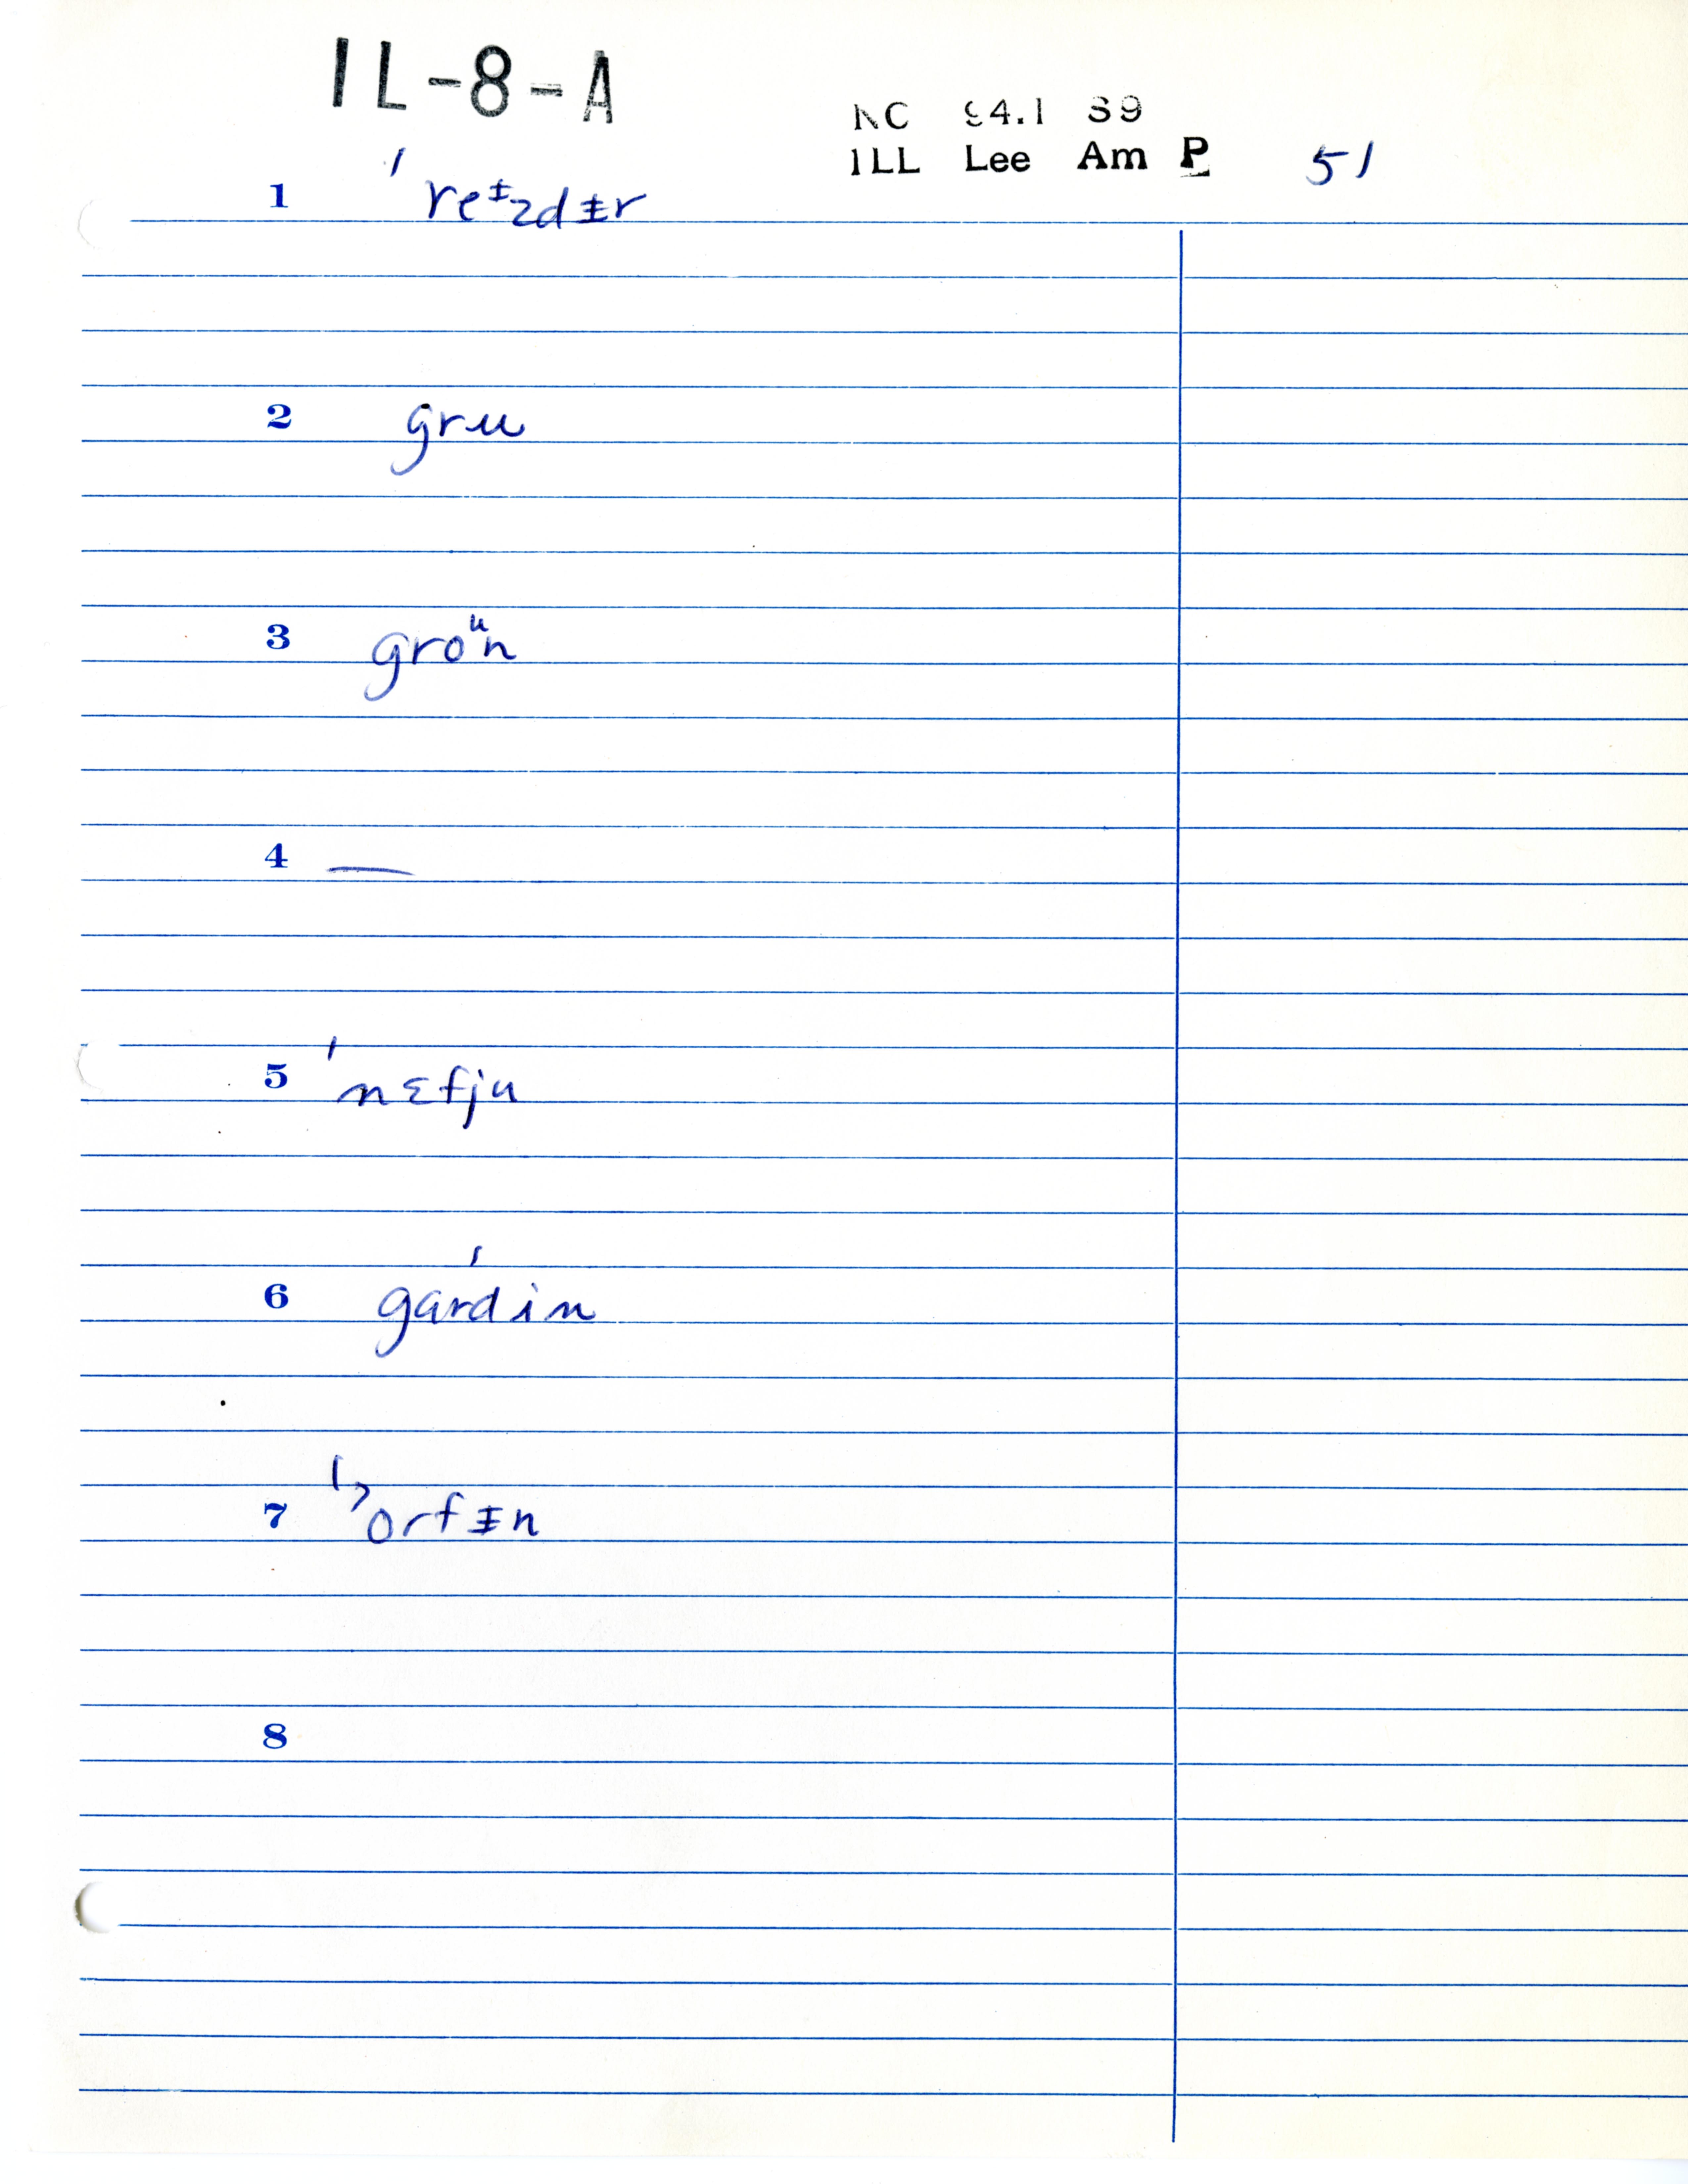 IL-8-A
NC 94.1 89
ILL Lee Am P 51
1 ˈreᵻzdᵻr
2 gru
3 groᵘn
4 —
5 ˈnɛfju
6 garˈdin
7 ˈʔorfᵻn
8